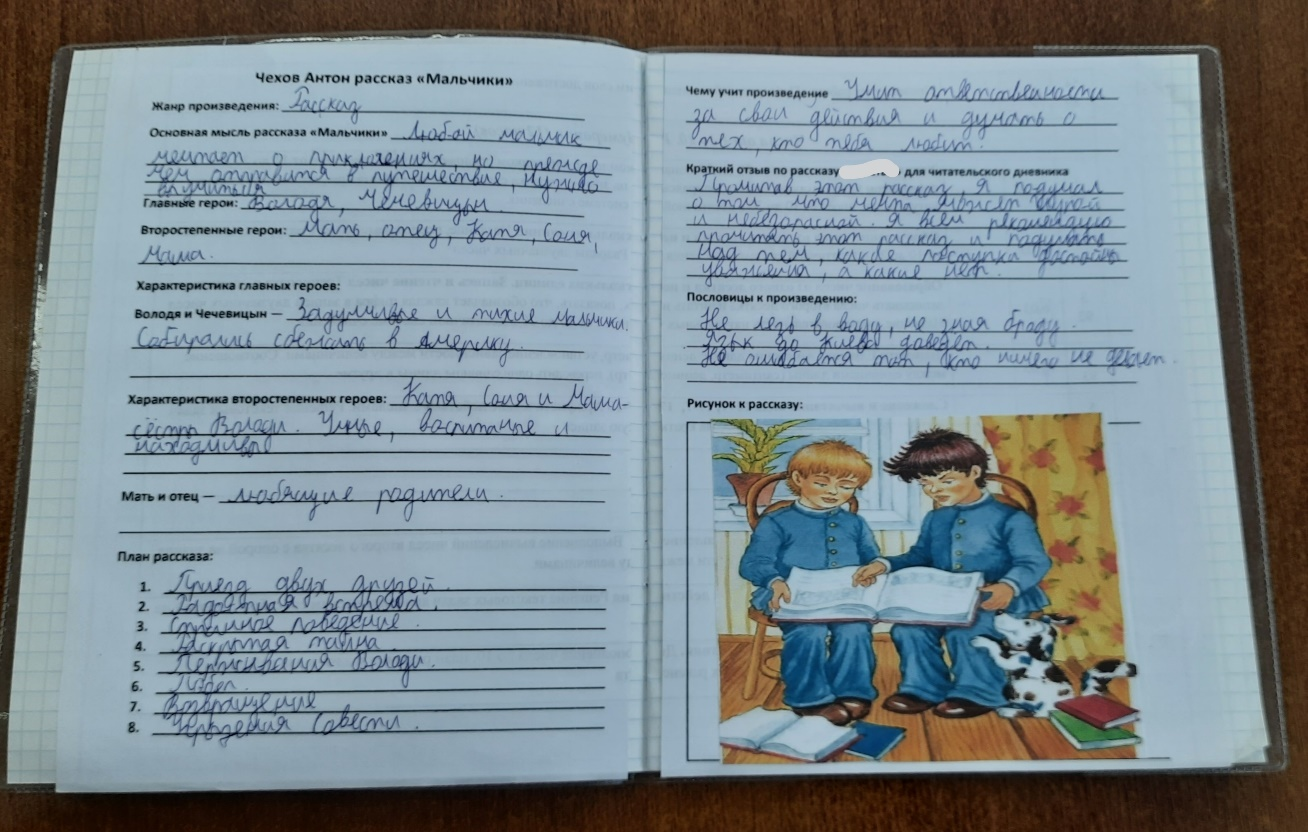 Чехов Антон рассказ «Мальчики»
Жанр произведения: Рассказ
Основная мысль рассказа «Мальчики» Любой мальчик
мечтает о приключениях, но прежде
чем отправится в путешествие, нужно
выучиться
Главные герои: Володя, Чечевицын.
Второстепенные герои: Мать, отец, Катя, Соня,
Маша.
Характеристика главных героев:
Володя и Чечевицын — Задумчивые и тихие мальчики.
Собирались сбежать в Америку.
Характеристика второстепенных героев: Катя, Соня и Маша-
сёстры Володи. Умные, воспитаные и
находчивые
Мать и отец — любящие родители.
План рассказа:
1. Приезд двух друзей.
2. Радостная встреча.
3. Странное поведение.
4. Раскрытая тайна
5. Переживания Володи.
6. Побег.
7. Возвращение
8. Угрызения совести.
Чему учит произведение Учит ответственности
за свои действия и думать о
тех, кто тебя любит.
Краткий отзыв по рассказу для читательского дневника
Прочитав этот рассказ, Я подумал
о том что мечта может быть
и небезопасной. Я всем рекомендую
прочитать этот рассказ и подумать
над тем, какие поступки достойны
уважения, а какие нет.
Пословицы к произведению:
Не лезь в воду, не зная броду.
Язык до Киева доведёт.
Не ошибается тот, кто ничего не делает.
Рисунок к рассказу: